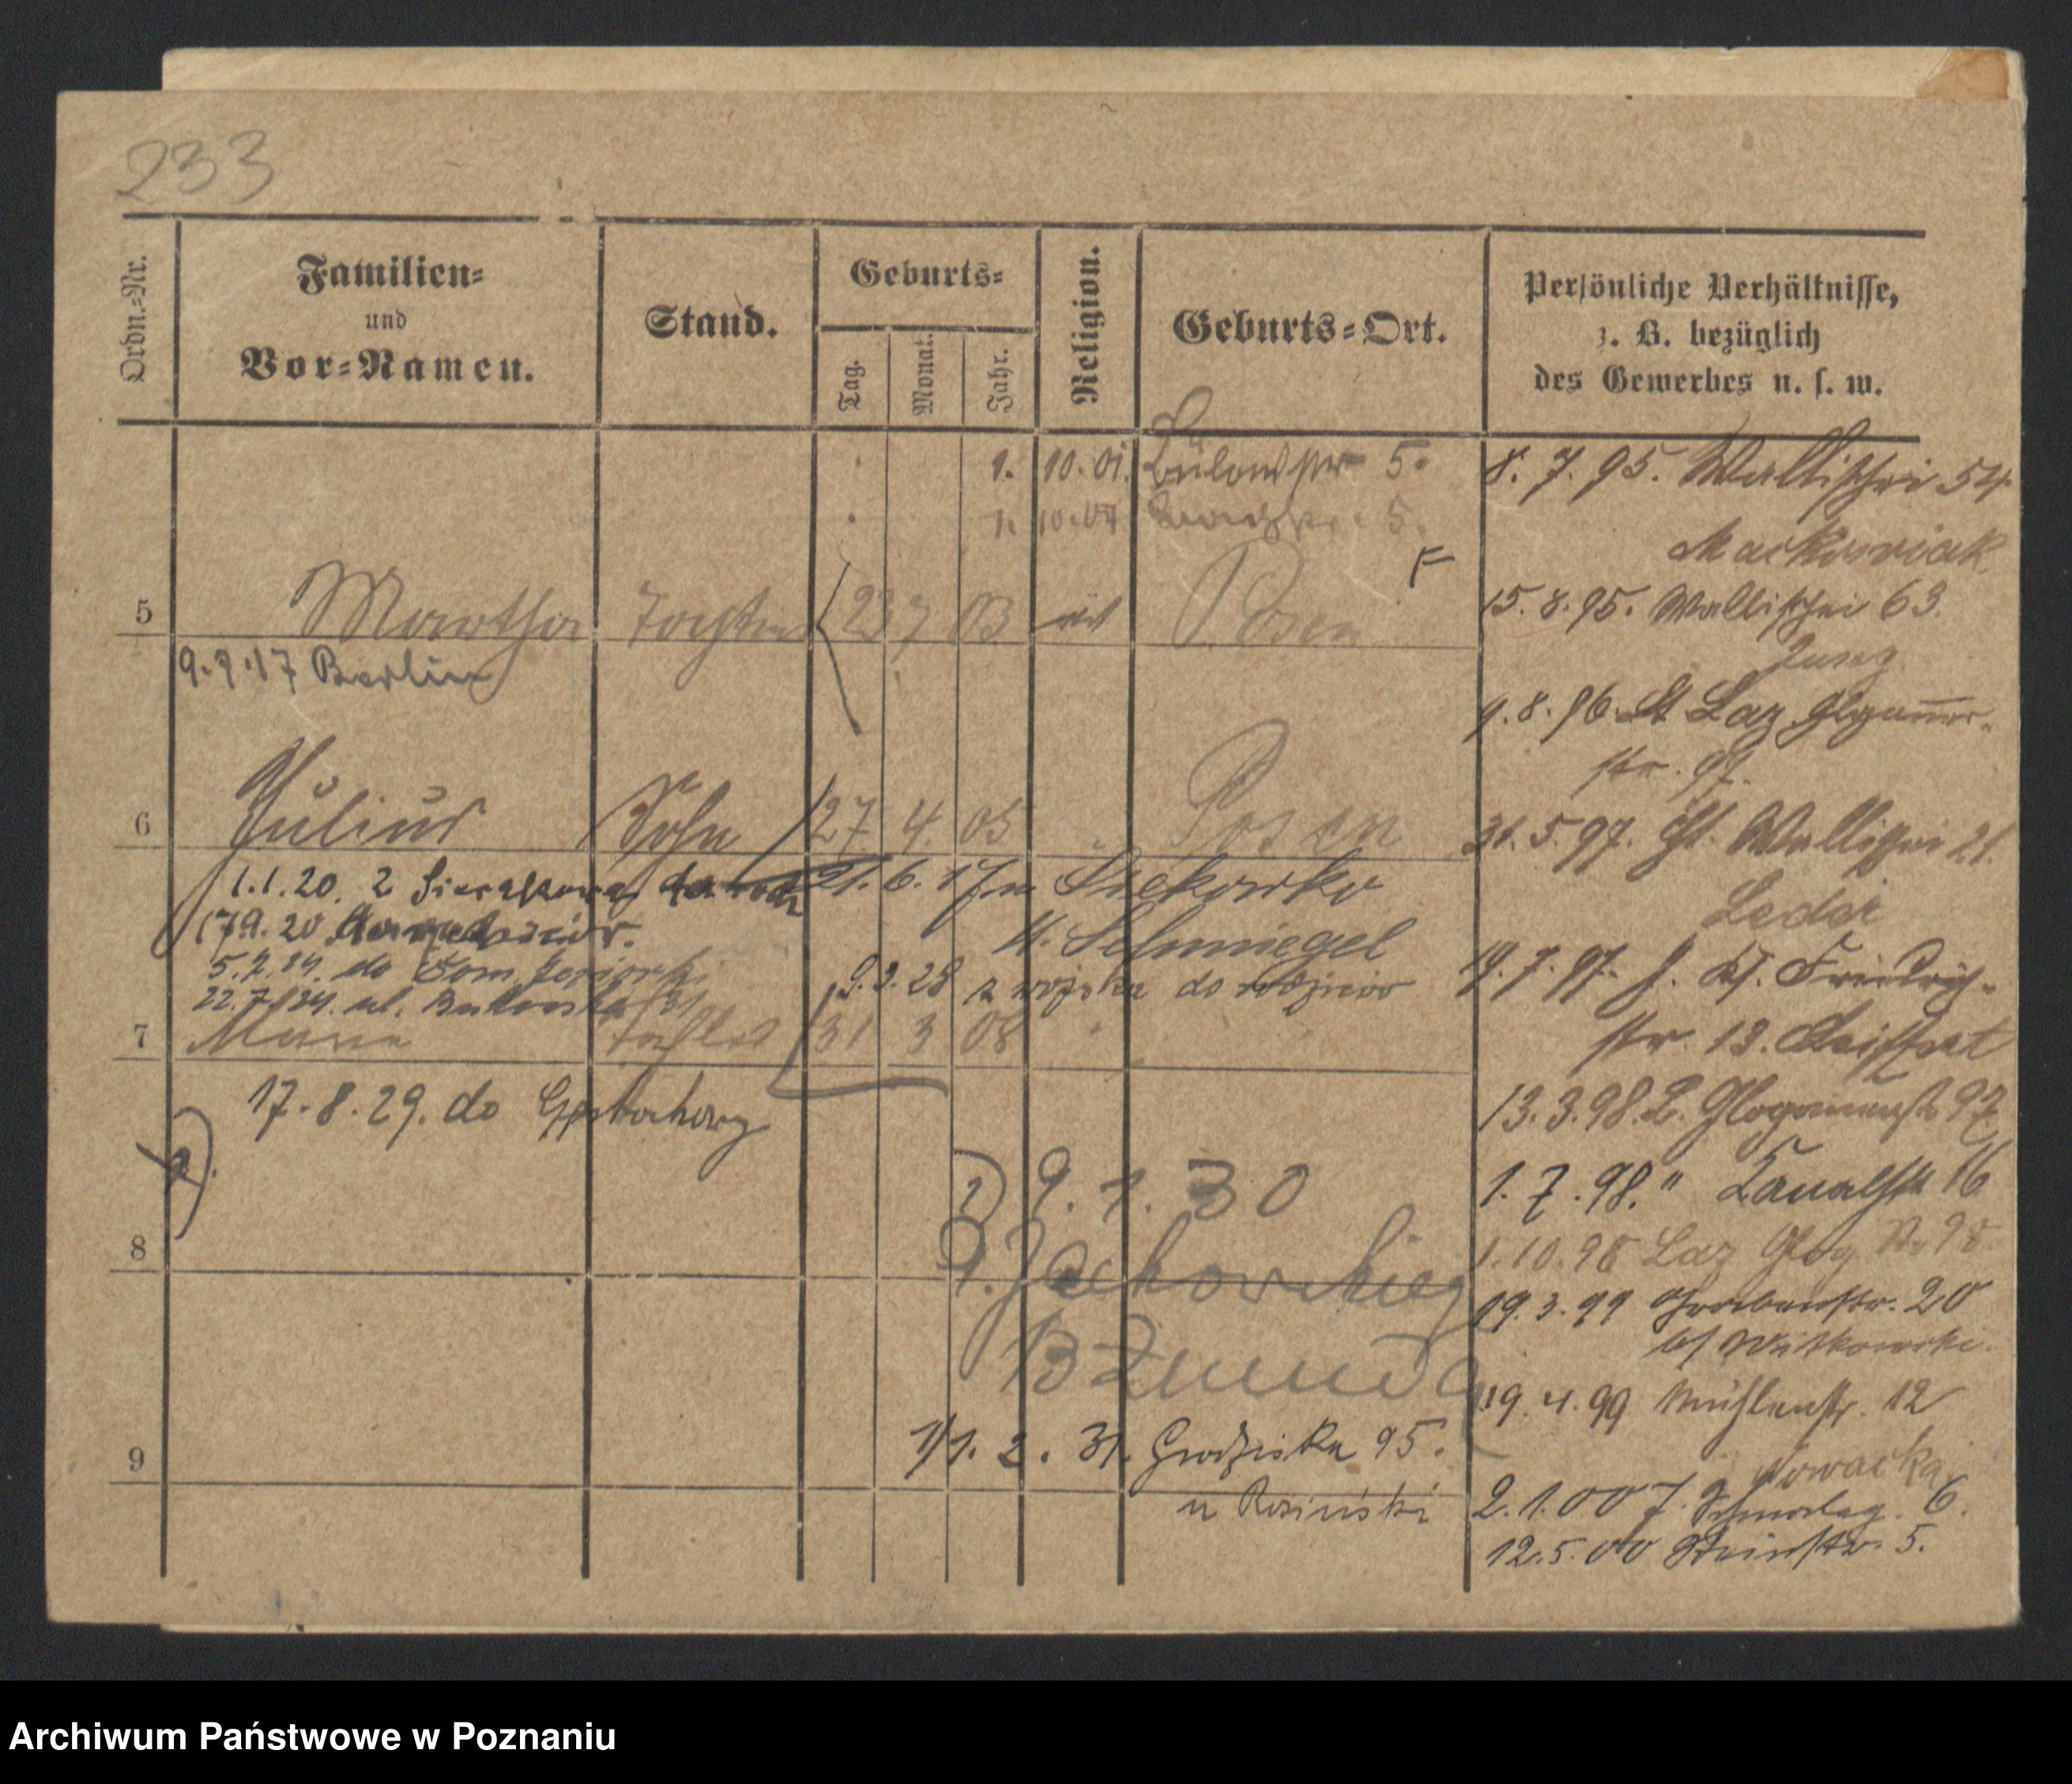 233
Ordn.=Nr.
Familien=
und
Vor=Namen.
Stand.
Geburts=
Tag.
Monat.
Jahr.
Religion.
Geburts=Ort.
Persönliche Verhältnisse,
z. B. bezüglich
des Gewerbes u. s. w.
1. 10. 01. Bülowstr 5.
1. 10. 07 5.
5 Martha Tochter 23 7 03 Posen
F
9. 9. 17 Berlin
6 Julius Sohn 27. 4. 05 " Posen
1.1.20. 2 21. 6. 17 n Sziekowko
17 9. 20 K. Schmiegel
5. 7. 24. do Dom. 9. 9. 28 z wojska do rodziców
22. 7. 24. ul. Bukowska 31
7 Maria Tochter 31 3 08 "
17. 8. 29. do
2)
8
2) 9. 1. 30
Żmuda
9
1/1. 2. 31. Grodziska 95.
u Rosiński
8. 7. 95. Wallischei 54
Maćkowiak
15. 8. 95. Wallischei 63.
Jung
9. 8. 96. St Laz Glogauer-
str. 97.
31. 5. 97. Wallischei 21.
Leder
19. 7. 97. J. Kf. Friedrich-
str. 13. Seiffert
13. 3. 98. L. Glogauerstr 97
1. 7. 98. " Kanalstr 16
1. 10. 98 Laz Glog Str 98
19. 3. 99 Grabenstr. 20
bf Witkowski
19. 4. 99 Mühlenstr. 12
Nowacka
2. 1. 00 J. 6.
12. 5. 00 Steinstr. 5.
Archiwum Państwowe w Poznaniu